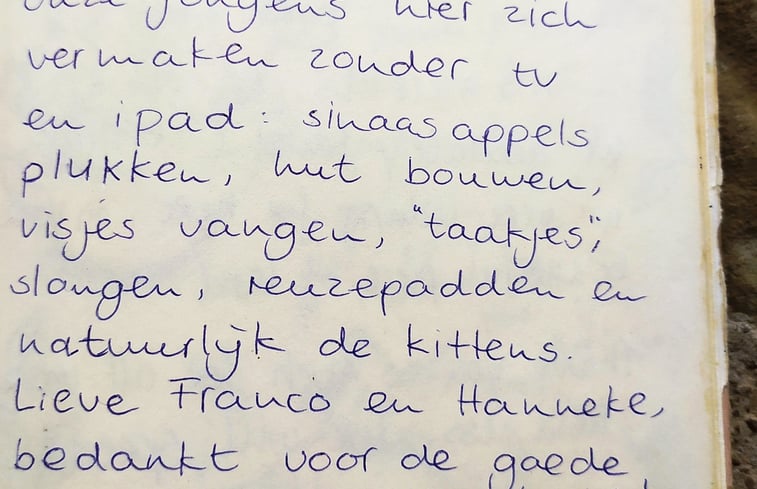 onze jongens hier zich
vermaken zonder tv
en ipad: sinaasappels
plukken, hut bouwen,
visjes vangen, "taakjes",
slangen, reuzepadden en
natuurlijk de kittens.
Lieve Franco en Hanneke,
bedankt voor de goede